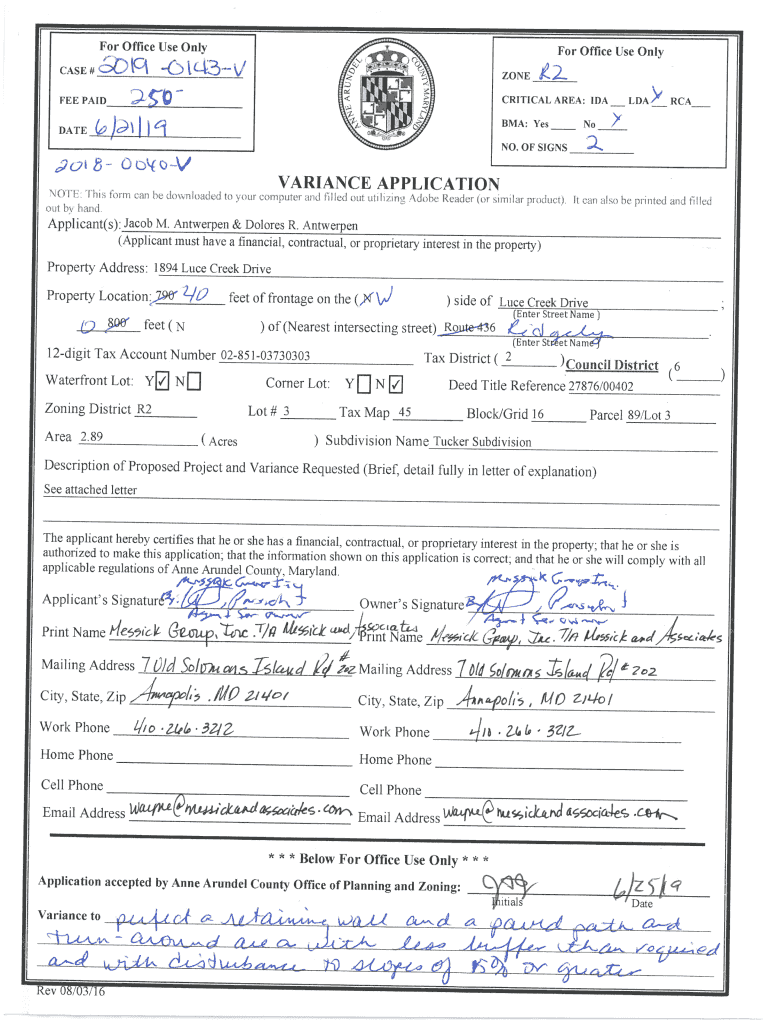 For Office Use Only
CASE # 2019-0143-V
FEE PAID 250-
DATE 6/21/19
2018-0040-V
ANNE ARUNDEL COUNTY MARYLAND
For Office Use Only
ZONE R2
CRITICAL AREA: IDA ___ LDA X RCA___
BMA: Yes ____ No X
NO. OF SIGNS 2
VARIANCE APPLICATION
NOTE: This form can be downloaded to your computer and filled out utilizing Adobe Reader (or similar product). It can also be printed and filled
out by hand.
Applicant(s): Jacob M. Antwerpen & Dolores R. Antwerpen
(Applicant must have a financial, contractual, or proprietary interest in the property)
Property Address: 1894 Luce Creek Drive
Property Location: 790 40 feet of frontage on the ( NW ) side of Luce Creek Drive ;
(Enter Street Name )
0 800 feet ( N ) of (Nearest intersecting street) Route 436 Ridgely .
(Enter Street Name)
12-digit Tax Account Number 02-851-03730303 Tax District ( 2 ) Council District ( 6 )
Waterfront Lot: Y ☑ N ☐ Corner Lot: Y ☐ N ☑ Deed Title Reference 27876/00402
Zoning District R2 Lot # 3 Tax Map 45 Block/Grid 16 Parcel 89/Lot 3
Area 2.89 ( Acres ) Subdivision Name Tucker Subdivision
Description of Proposed Project and Variance Requested (Brief, detail fully in letter of explanation)
See attached letter
The applicant hereby certifies that he or she has a financial, contractual, or proprietary interest in the property; that he or she is
authorized to make this application; that the information shown on this application is correct; and that he or she will comply with all
applicable regulations of Anne Arundel County, Maryland.
Messick Group Inc Messick Group Inc.
Applicant's Signature By: , President Owner's Signature By , President
Agent for owner Agent for owner
Print Name Messick Group, Inc. T/A Messick and Associates Print Name Messick Group, Inc. T/A Messick and Associates
Mailing Address 7 Old Solomons Island Rd #202 Mailing Address 7 Old Solomons Island Rd #202
City, State, Zip Annapolis, MD 21401 City, State, Zip Annapolis, MD 21401
Work Phone 410.266.3212 Work Phone 410.266.3212
Home Phone Home Phone
Cell Phone Cell Phone
Email Address wayne@messickandassociates.com Email Address wayne@messickandassociates.com
* * * Below For Office Use Only * * *
Application accepted by Anne Arundel County Office of Planning and Zoning: 6/25/19
Initials Date
Variance to perfect a retaining wall and a paved path and
turn-around area with less buffer than required
and with disturbance to slopes of 15% or greater
Rev 08/03/16